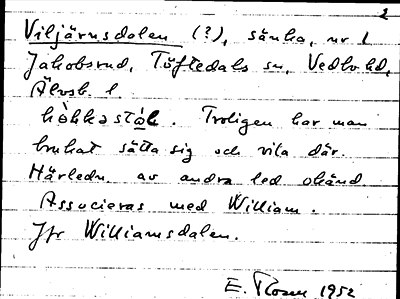 2
Viljärnsdalen (?), sänka, nr 1
Jakobsrud, Töftedals sn, Vedbo hd,
Älvsb. l.
hǫ̀kkastǻḷ. Troligen har man
brukat sätta sig och vila där.
Härledn. av andra led okänd
Associeras med William.
Jfr Williamsdalen.
E. 1952